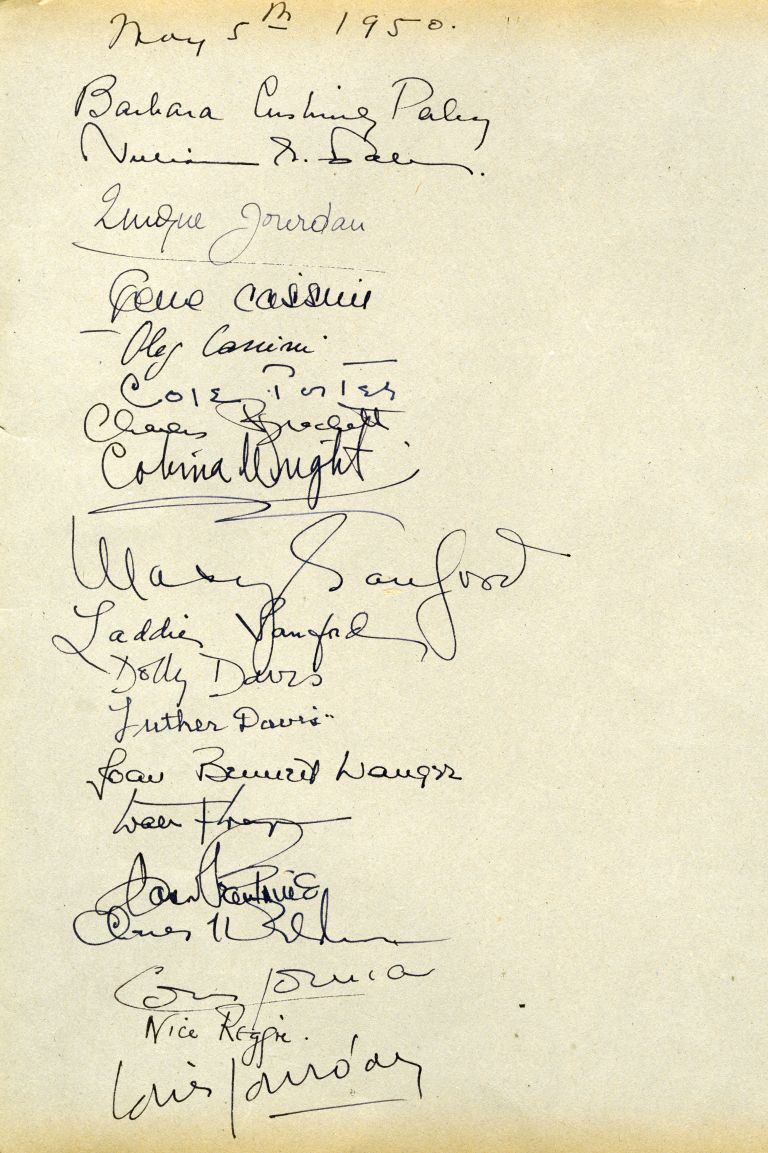 May 5th 1950.
Barbara Cushing Paley
William S. Paley.
Quique Jourdan
Gene Cassini
Oleg Cassini
Cole Porter
Charles Brackett
Cobina Wright
Mary Sanford
Laddie Sanford
Dolly Davis
Luther Davis
Joan Bennett Wanger
Walter Wanger
Nice Reggie.
Louis Jourdan